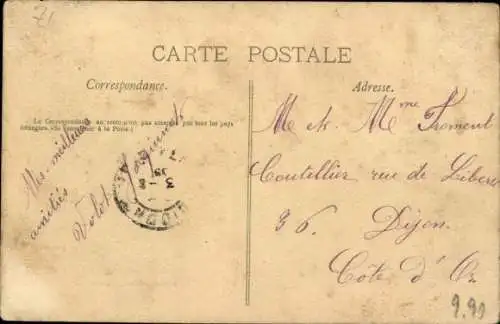 CARTE POSTALE
Correspondance.
Adresse.
La Correspondance au recto n'est pas acceptée par tous les pays
étrangers. (Se renseigner à la Poste)
Mes meilleures
amitiés
Volot
M et Mme Froment
Coutellier rue de
36. Dijon
Côte d'Or
9.90